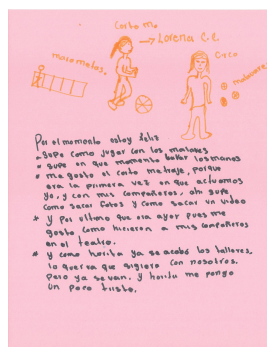 Corto M.
→ Lorena C.C.
maromotos.
Circo
malavare
Por el momento estoy feliz
- supe como jugar con los malavares
* supe en que momento botar las manos
* me gusto el corto metraje, porque
era la primera vez en que actuamos
yo, y con mis compañeros, ahi supe
como sacar fotos y como sacar un video
* Y por ultimo que era ayer pues me
gusto como hicieron a mis compañeros
en el teatro.
* y como horita ya se acabó los talleres,
lo querría que sigiera con nosotros.
Pero ya se van. Y horita me pongo
un poco triste.